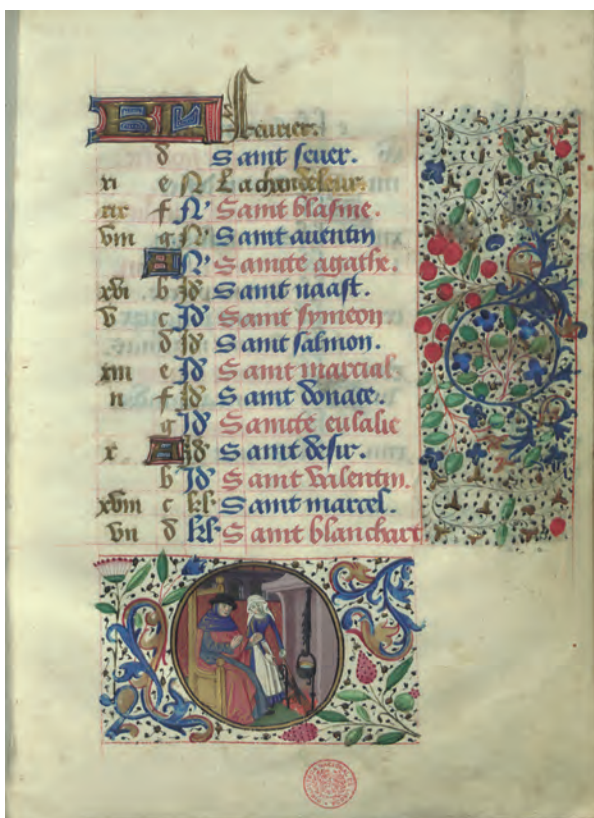 KL Feurier.
d Saint seuer.
xi e N La chandeleur.
xix f N Saint blasme.
viii g N Saint auentin
A N Saincte agathe.
xvi b Id Saint vaast.
v c Id Saint symeon
d Id Saint salmon.
xiii e Id Saint marcial
ii f Id Saint donace.
g Id Saincte eulalie
x A Id Saint desir.
b Id Saint valentin.
xviii c kl Saint marcel.
vii d kl Saint blanchart